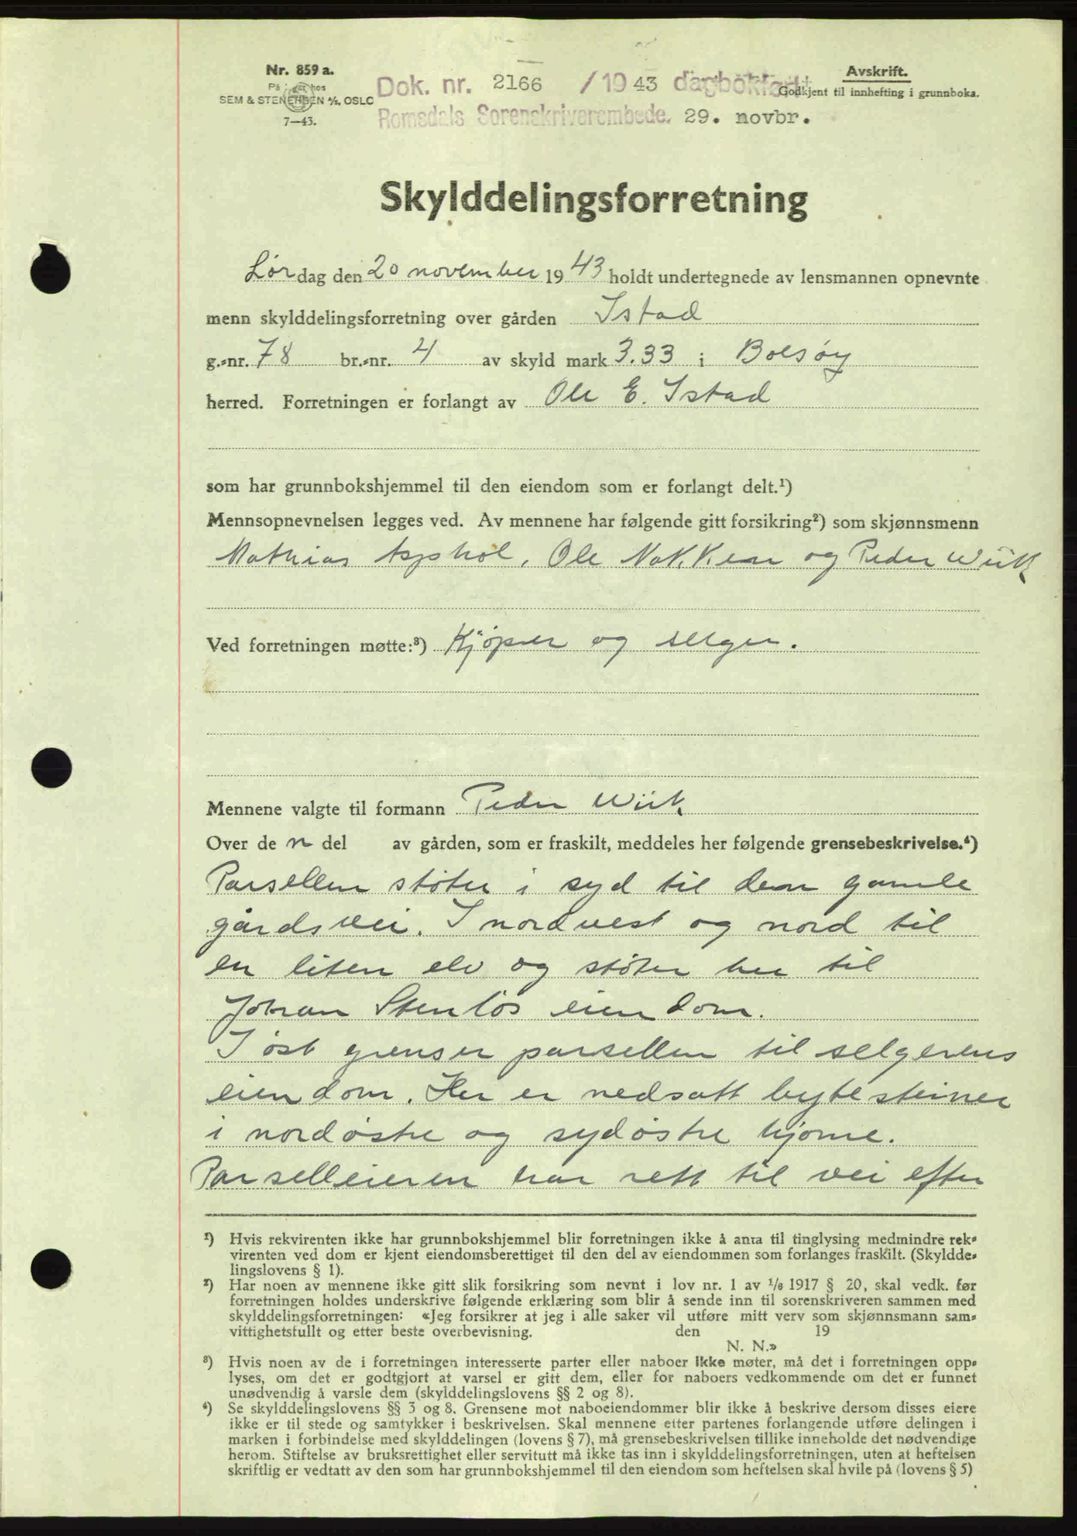 Nr. 859 a.
På lager hos
SEM & STENERSEN A/S, OSLO
7—43.
Dok. nr. 2166 /19 43 dagbokført
Romsdals Sorenskriverembede. 29. novbr.
Avskrift.
Godkjent til innhefting i grunnboka.
Skylddelingsforretning
Lørdag den 20 november 1943 holdt undertegnede av lensmannen opnevnte
menn skylddelingsforretning over gården Istad
g.-nr. 78 br.-nr. 4 av skyld mark 3.33 i Bolsøy
herred. Forretningen er forlangt av Ole E. Istad
som har grunnbokshjemmel til den eiendom som er forlangt delt.¹)
Mennsopnevnelsen legges ved. Av mennene har følgende gitt forsikring²) som skjønnsmenn
Mathias Asphol, Ole Nakken og Peder Wiik
Ved forretningen møtte:³) Kjøper og selger.
Mennene valgte til formann Peder Wiik
Over de n del av gården, som er fraskilt, meddeles her følgende grensebeskrivelse.⁴)
Parsellen støter i syd til den gamle
gårdsvei. I nordvest og nord til
en liten elv og støter her til
Johan Stenløs eiendom.
I øst grenser parsellen til selgerens
eiendom. Her er nedsatt bytesteiner
i nordøstre og sydøstre hjørne.
Parselleieren har rett til vei efter
¹) Hvis rekvirenten ikke har grunnbokshjemmel blir forretningen ikke å anta til tinglysing medmindre rek-
virenten ved dom er kjent eiendomsberettiget til den del av eiendommen som forlanges fraskilt. (Skyldde-
lingslovens § 1).
²) Har noen av mennene ikke gitt slik forsikring som nevnt i lov nr. 1 av 1/6 1917 § 20, skal vedk. før
forretningen holdes underskrive følgende erklæring som blir å sende inn til sorenskriveren sammen med
skylddelingsforretningen: «Jeg forsikrer at jeg i alle saker vil utføre mitt verv som skjønnsmann sam-
vittighetsfullt og etter beste overbevisning. den 19
N. N.»
³) Hvis noen av de i forretningen interesserte parter eller naboer ikke møter, må det i forretningen opp-
lyses, om det er godtgjort at varsel er gitt dem, eller for naboers vedkommende om det er funnet
unødvendig å varsle dem (skylddelingslovens §§ 2 og 8).
⁴) Se skylddelingslovens §§ 3 og 8. Grensene mot naboeiendommer blir ikke å beskrive dersom disses eiere
ikke er til stede og samtykker i beskrivelsen. Skal mennene etter partenes forlangende utføre delingen i
marken i forbindelse med skylddelingen (lovens § 7), må grensebeskrivelsen tillike inneholde det nødvendige
herom. Stiftelse av bruksrettighet eller servitutt må ikke tas inn i skylddelingsforretningen, uten at heftelsen
skriftlig er vedtatt av den som har grunnbokshjemmel til den eiendom som heftelsen skal hvile på (lovens § 5)